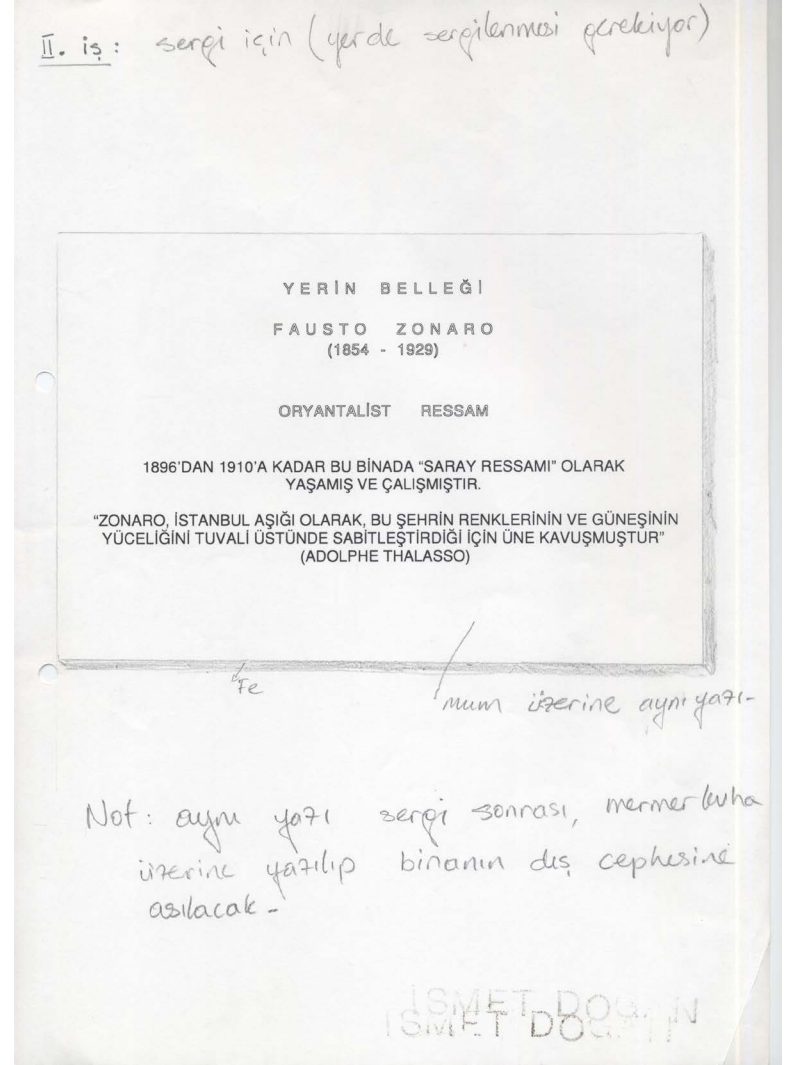 II. iş : sergi için (yerde sergilenmesi gerekiyor)
YERİN BELLEĞİ
FAUSTO ZONARO
(1854 - 1929)
ORYANTALİST RESSAM
1896'DAN 1910'A KADAR BU BİNADA “SARAY RESSAMI” OLARAK
YAŞAMIŞ VE ÇALIŞMIŞTIR.
“ZONARO, İSTANBUL AŞIĞI OLARAK, BU ŞEHRİN RENKLERİNİN VE GÜNEŞİNİN
YÜCELİĞİNİ TUVALİ ÜSTÜNDE SABİTLEŞTİRDİĞİ İÇİN ÜNE KAVUŞMUŞTUR”
(ADOLPHE THALASSO)
Fe
mum üzerine aynı yazı-
Not: aynı yazı sergi sonrası, mermer levha
üzerine yazılıp binanın dış cephesine
asılacak -
İSMET DOĞAN
İSMET DOĞAN